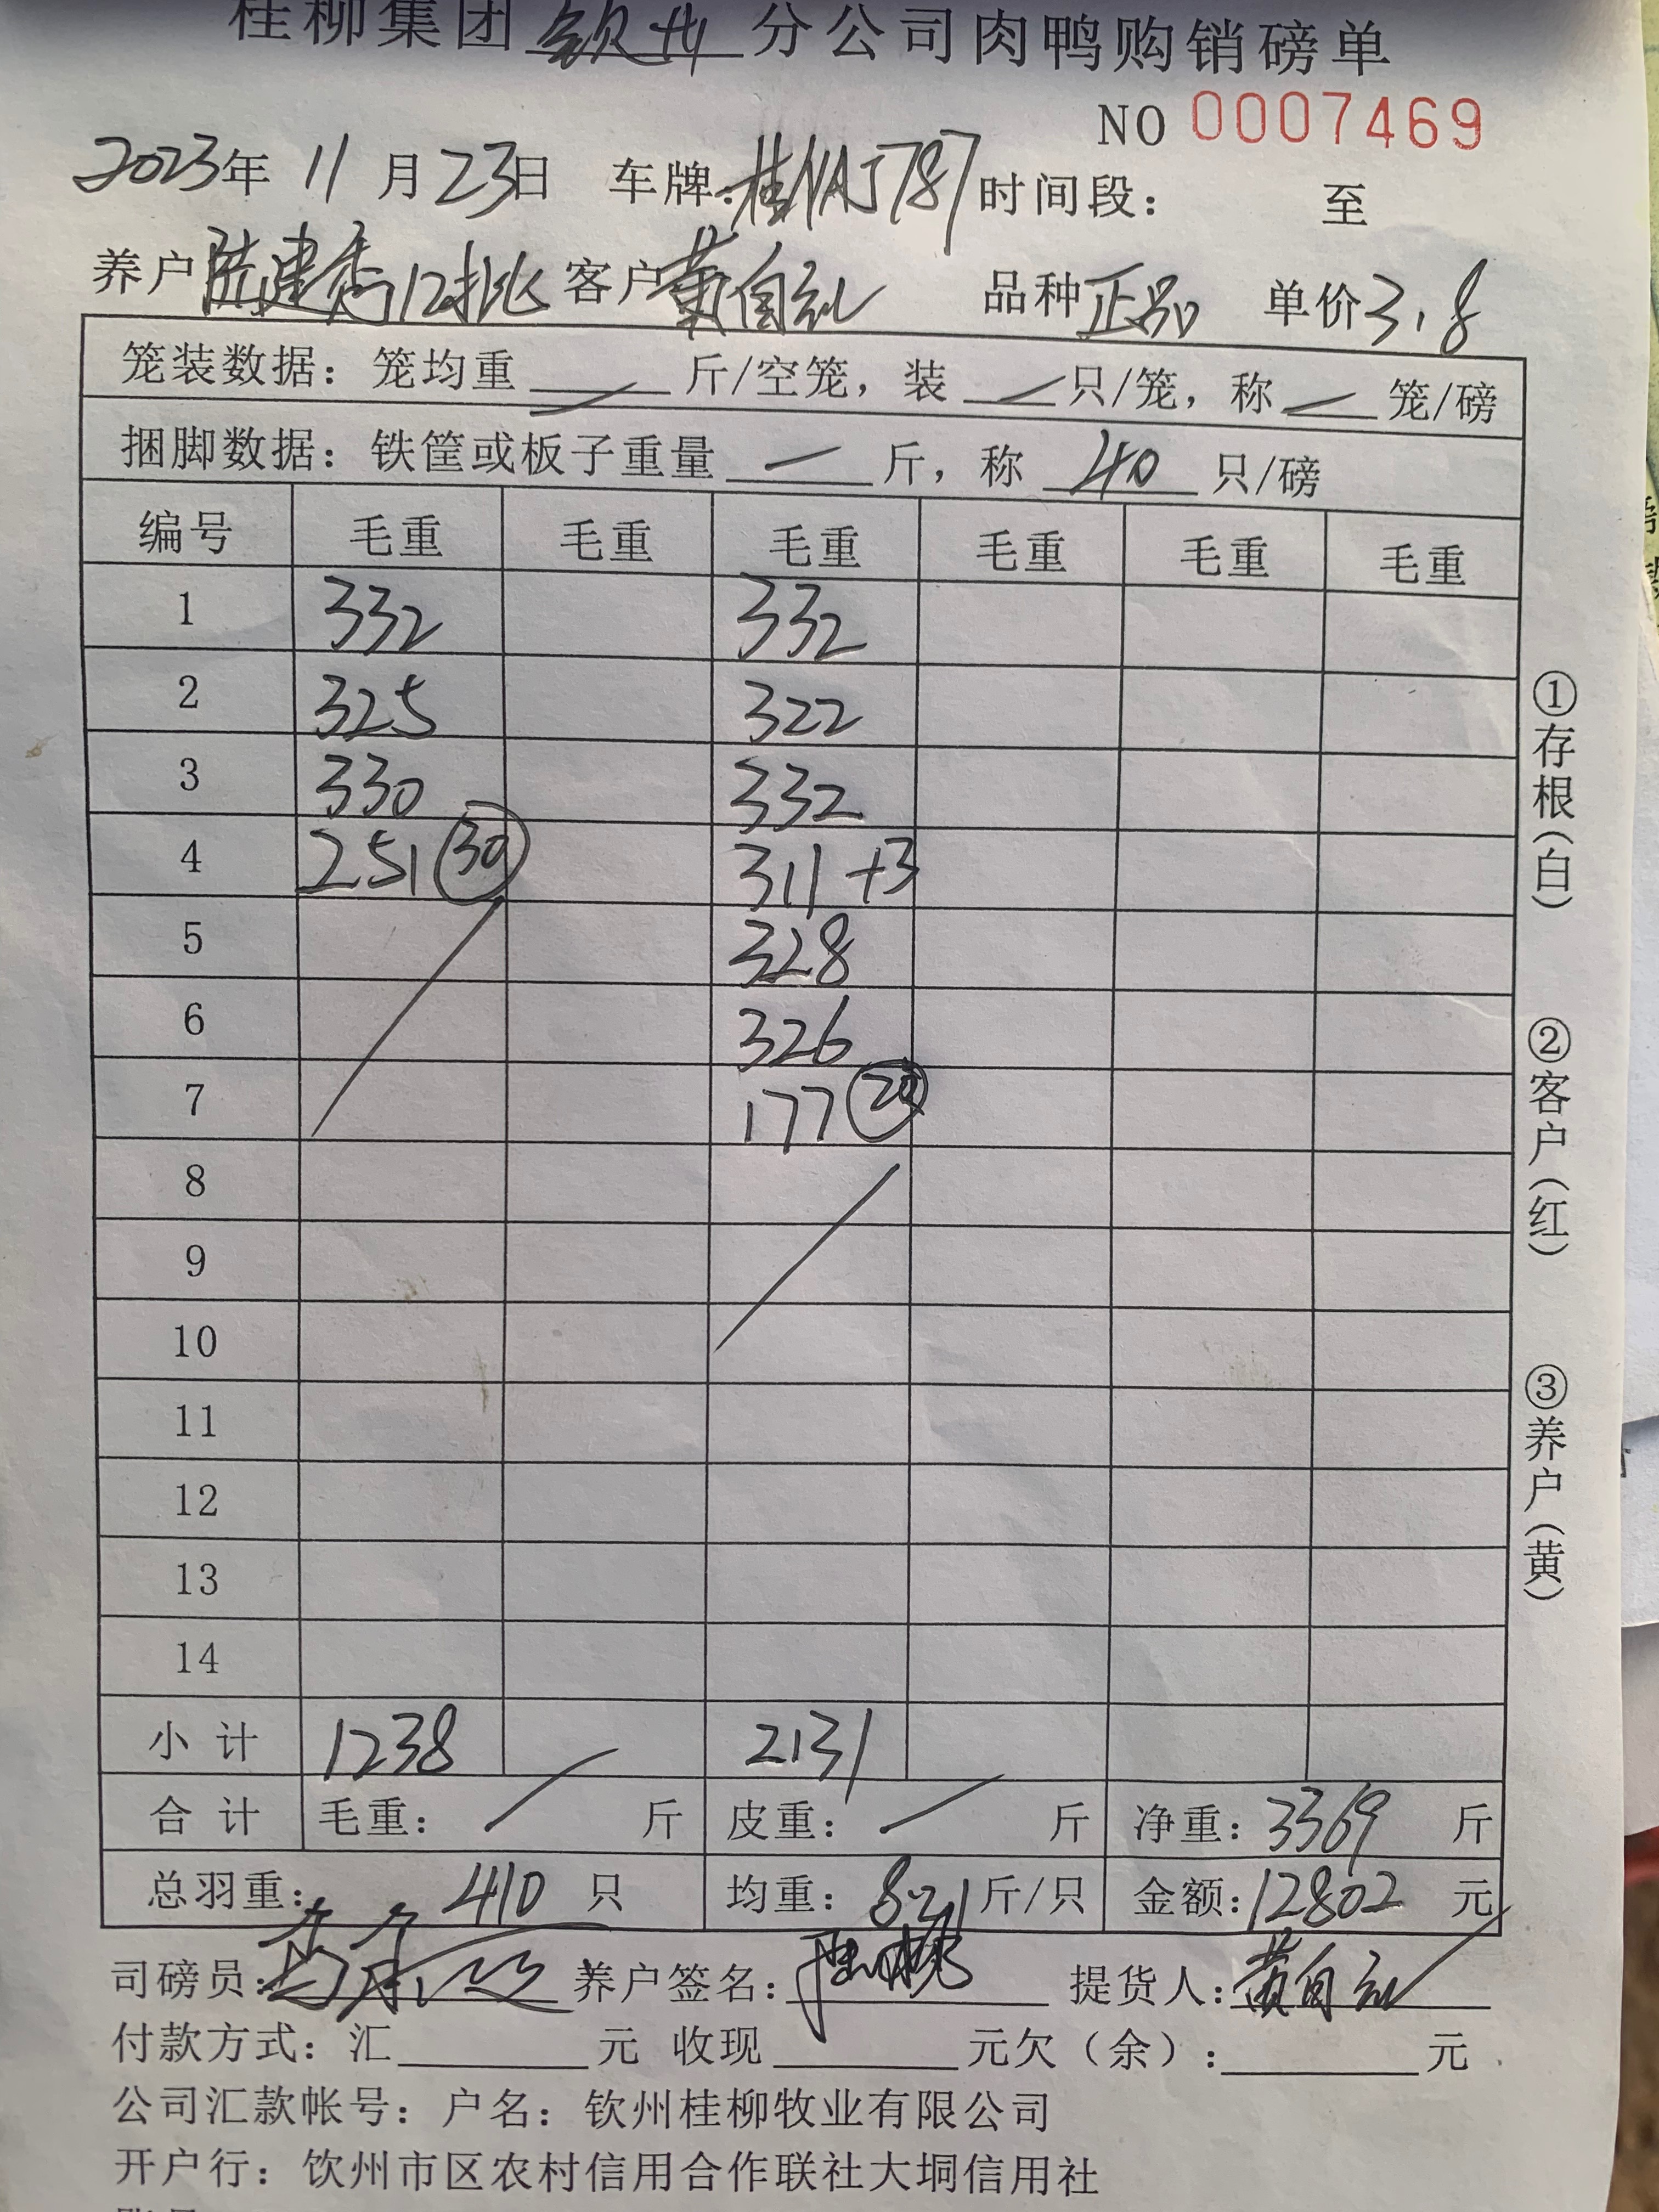 桂柳集团 钦州 分公司肉鸭购销磅单
NO 0007469
2023年 11 月 23日 车牌: 时间段: 至
养户 陆建秀12批 客户 黄自红 品种 正品 单价 3.8
笼装数据: 笼均重 斤/空笼, 装 只/笼, 称 笼/磅
捆脚数据: 铁筐或板子重量 斤, 称 40 只/磅
编号 毛重 毛重 毛重 毛重 毛重 毛重
1 332 332
2 325 322
3 330 332
4 251 30 311 +3
5 328
6 326
7 177 20
8
9
10
11
12
13
14
小 计 1238 2131
合 计 毛重: 斤 皮重: 斤 净重: 3369 斤
总羽重: 410 只 均重: 8.21 斤/只 金额: 12802 元
司磅员: 养户签名: 提货人: 黄自红
付款方式: 汇 元 收现 元欠(余): 元
公司汇款帐号: 户名: 钦州桂柳牧业有限公司
开户行: 钦州市区农村信用合作联社大垌信用社
①存根(白)
②客户(红)
③养户(黄)